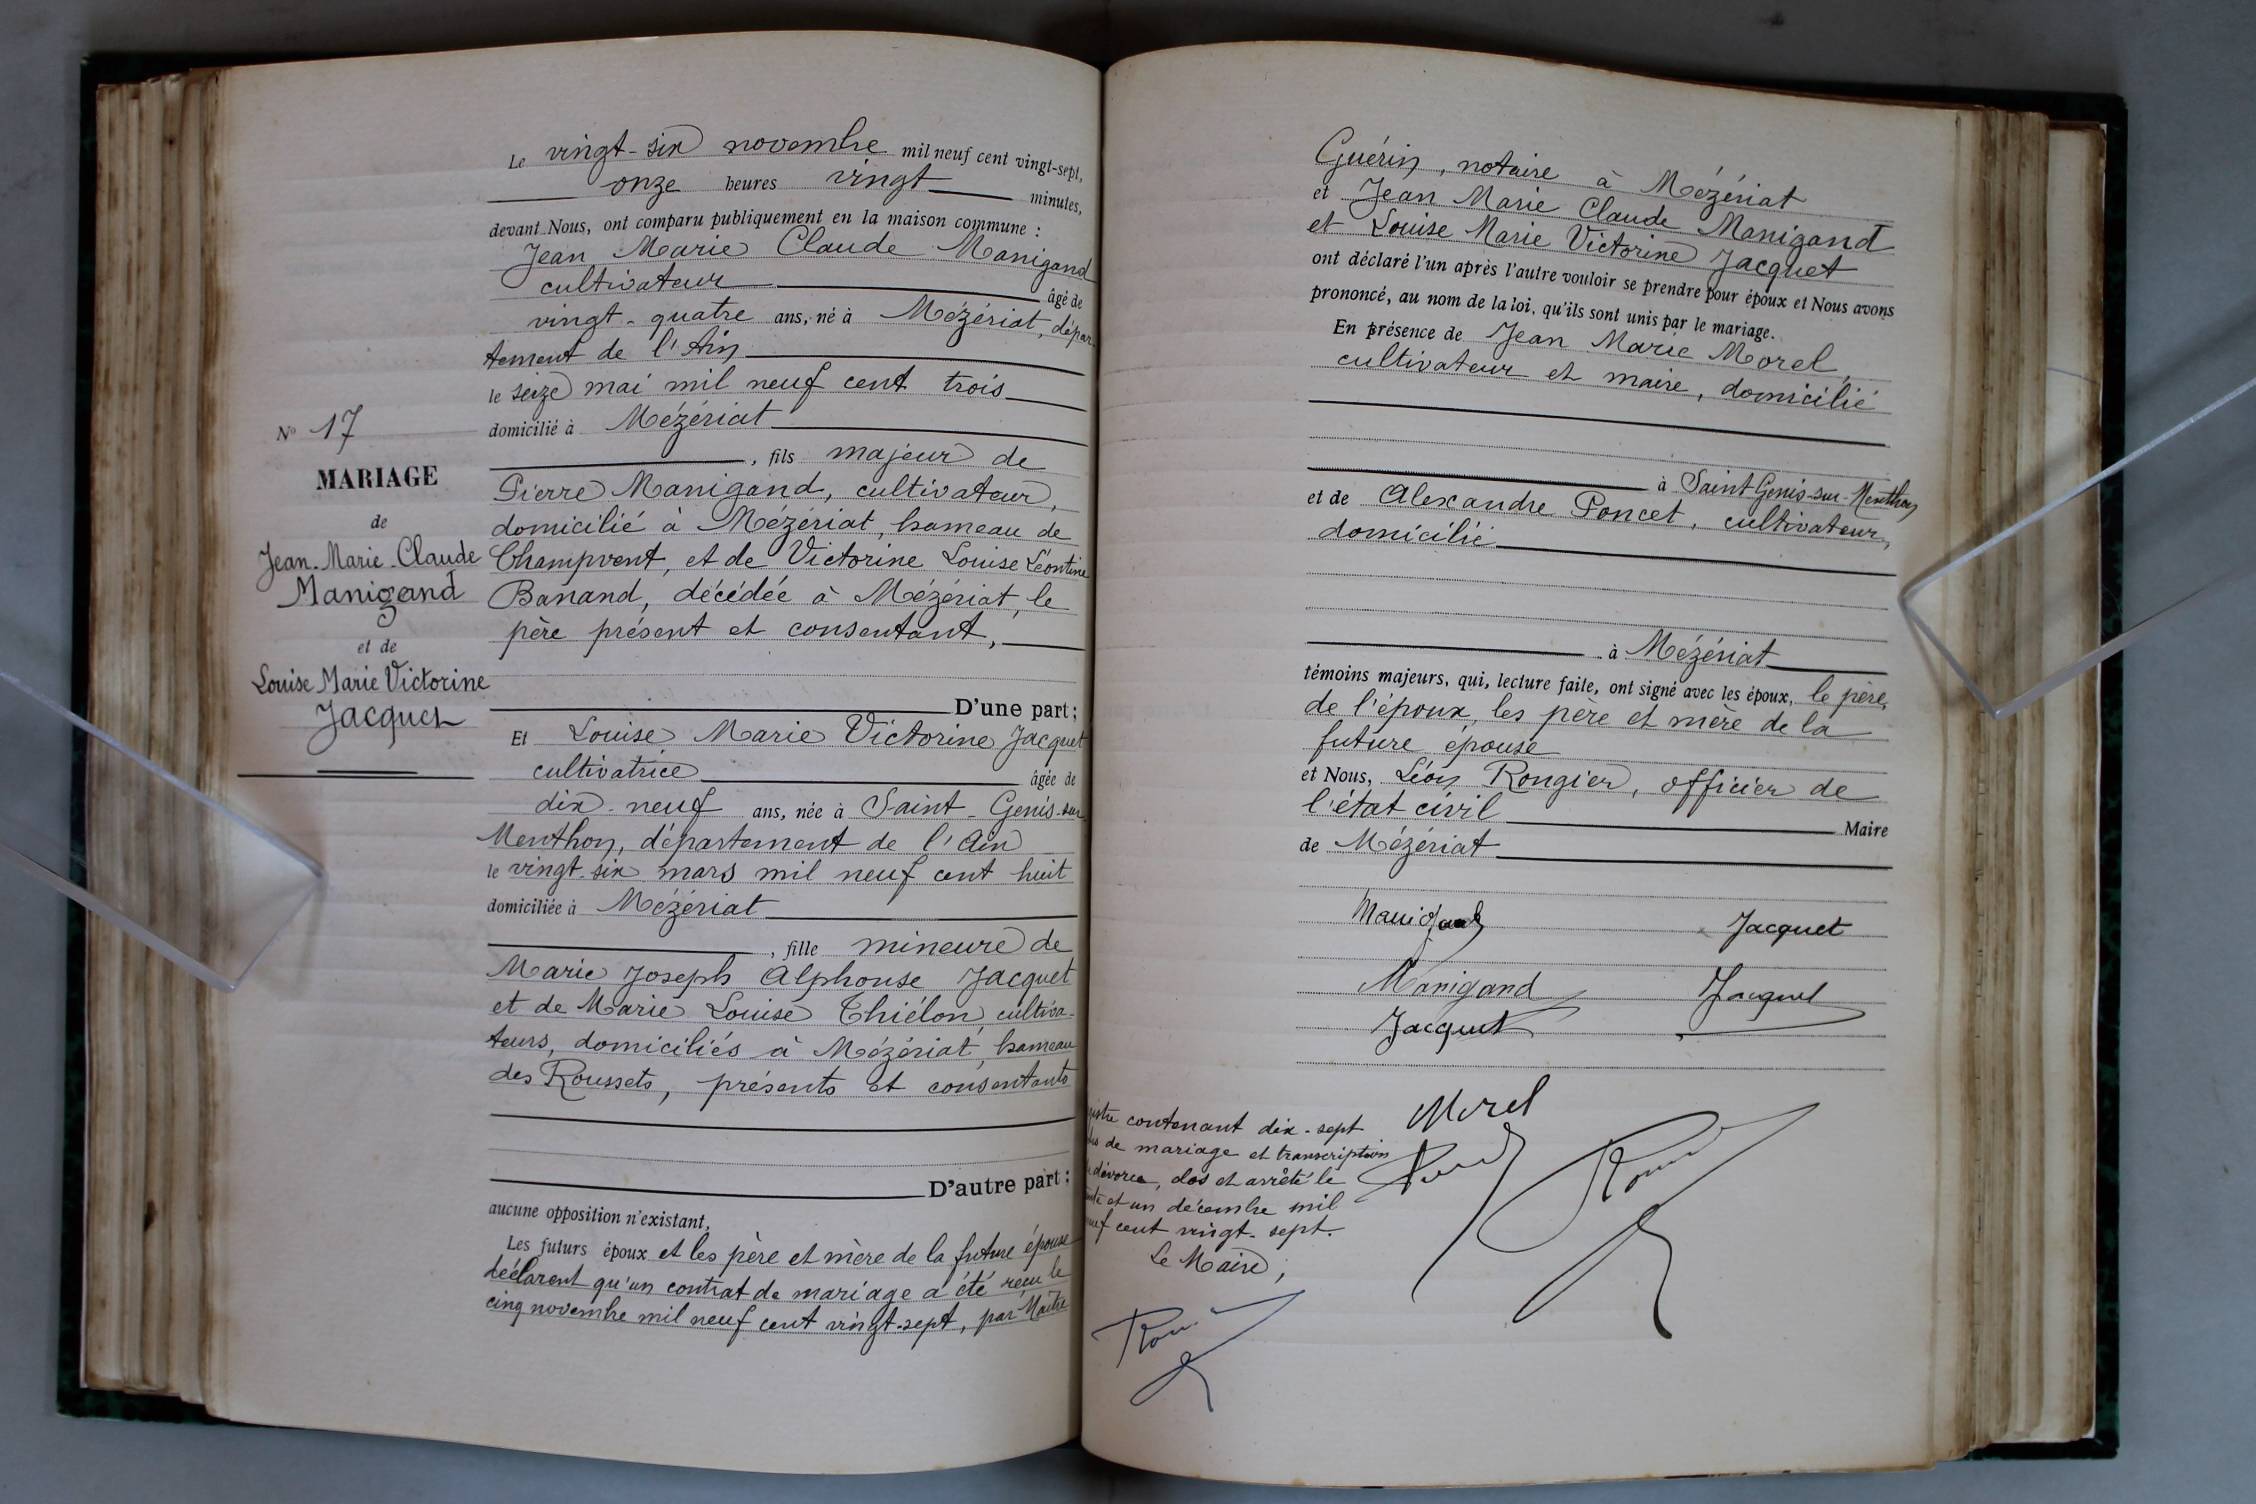 N° 17
MARIAGE
de
Jean-Marie-Claude
Manigand
et de
Louise Marie Victorine
Jacquet
Le vingt-six novembre mil neuf cent vingt-sept,
onze heures vingt minutes,
devant Nous, ont comparu publiquement en la maison commune :
Jean Marie Claude Manigand
cultivateur âgé de
vingt-quatre ans, né à Mézériat, dépar-
tement de l'Ain
le seize mai mil neuf cent trois
domicilié à Mézériat
, fils majeur de
Pierre Manigand, cultivateur,
domicilié à Mézériat, hameau de
Champvent, et de Victorine Louise Léontine
Banand, décédée à Mézériat, le
père présent et consentant,
D'une part ;
Et Louise Marie Victorine Jacquet
cultivatrice âgée de
dix-neuf ans, née à Saint-Genis-sur-
Menthon, département de l'Ain
le vingt-six mars mil neuf cent huit
domiciliée à Mézériat
, fille mineure de
Marie Joseph Alphonse Jacquet
et de Marie Louise Thiélon, cultiva-
teurs, domiciliés à Mézériat, hameau
des Roussets, présents et consentants
D'autre part ;
aucune opposition n'existant,
Les futurs époux et les père et mère de la future épouse
déclarent qu'un contrat de mariage a été reçu le
cinq novembre mil neuf cent vingt-sept, par Maître
Guérin, notaire à Mézériat
et Jean Marie Claude Manigand
et Louise Marie Victorine Jacquet
ont déclaré l'un après l'autre vouloir se prendre pour époux et Nous avons
prononcé, au nom de la loi, qu'ils sont unis par le mariage.
En présence de Jean Marie Morel,
cultivateur et maire, domicilié
à Saint Genis-sur-Menthon
et de Alexandre Poncet, cultivateur,
domicilié
à Mézériat
témoins majeurs, qui, lecture faite, ont signé avec les époux, le père,
de l'époux, les père et mère de la
future épouse
et Nous, Léon Rongier, officier de
l'état civil Maire
de Mézériat
Manigand Jacquet
Manigand Jacquet
Jacquet
Morel
contenant dix-sept
de mariage et transcription
divorce, clos et arrêté le
et un décembre mil
cent vingt-sept.
Le Maire,